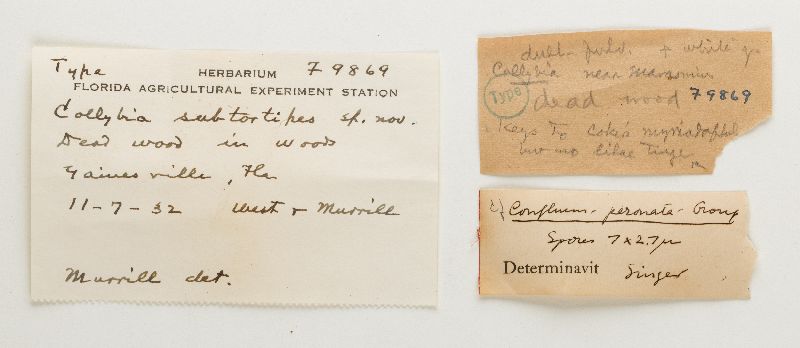 Type HERBARIUM 79869
FLORIDA AGRICULTURAL EXPERIMENT STATION
Collybia subtortipes sp. nov.
Dead wood in woods
Gainesville, Fla
11-7-32 West & Murrill
Murrill det.
dull + white
Collybia near Marasmius
Type dead wood 79869
Keys to Coke's myriadophyl
but no lilac Tinge
Confluens-peronata-Group
Spores 7x2.7µ
Determinavit Singer